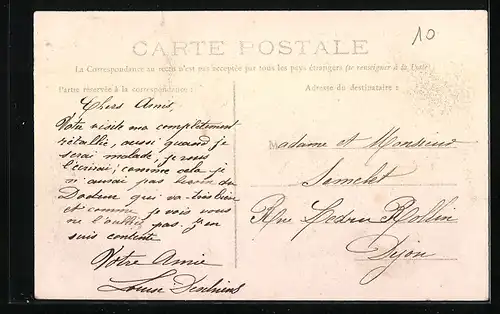 10
CARTE POSTALE
La Correspondance au recto n'est pas acceptée par tous les pays étrangers (se renseigner à la Poste)
Partie réservée à la correspondance :
Adresse du destinataire :
Chers Amis
Votre visite ma complètement
rétablie, aussi quand je
serai malade, je vous
l'écrirai, comme cela je
n'aurai pas besoin du
Docteur qui va très bien
et comme je vois vous
ne l'oubliez pas, j'en
suis contente
Votre Amie
Louise
Madame et Monsieur
Rue Ledru Rollin
Dijon